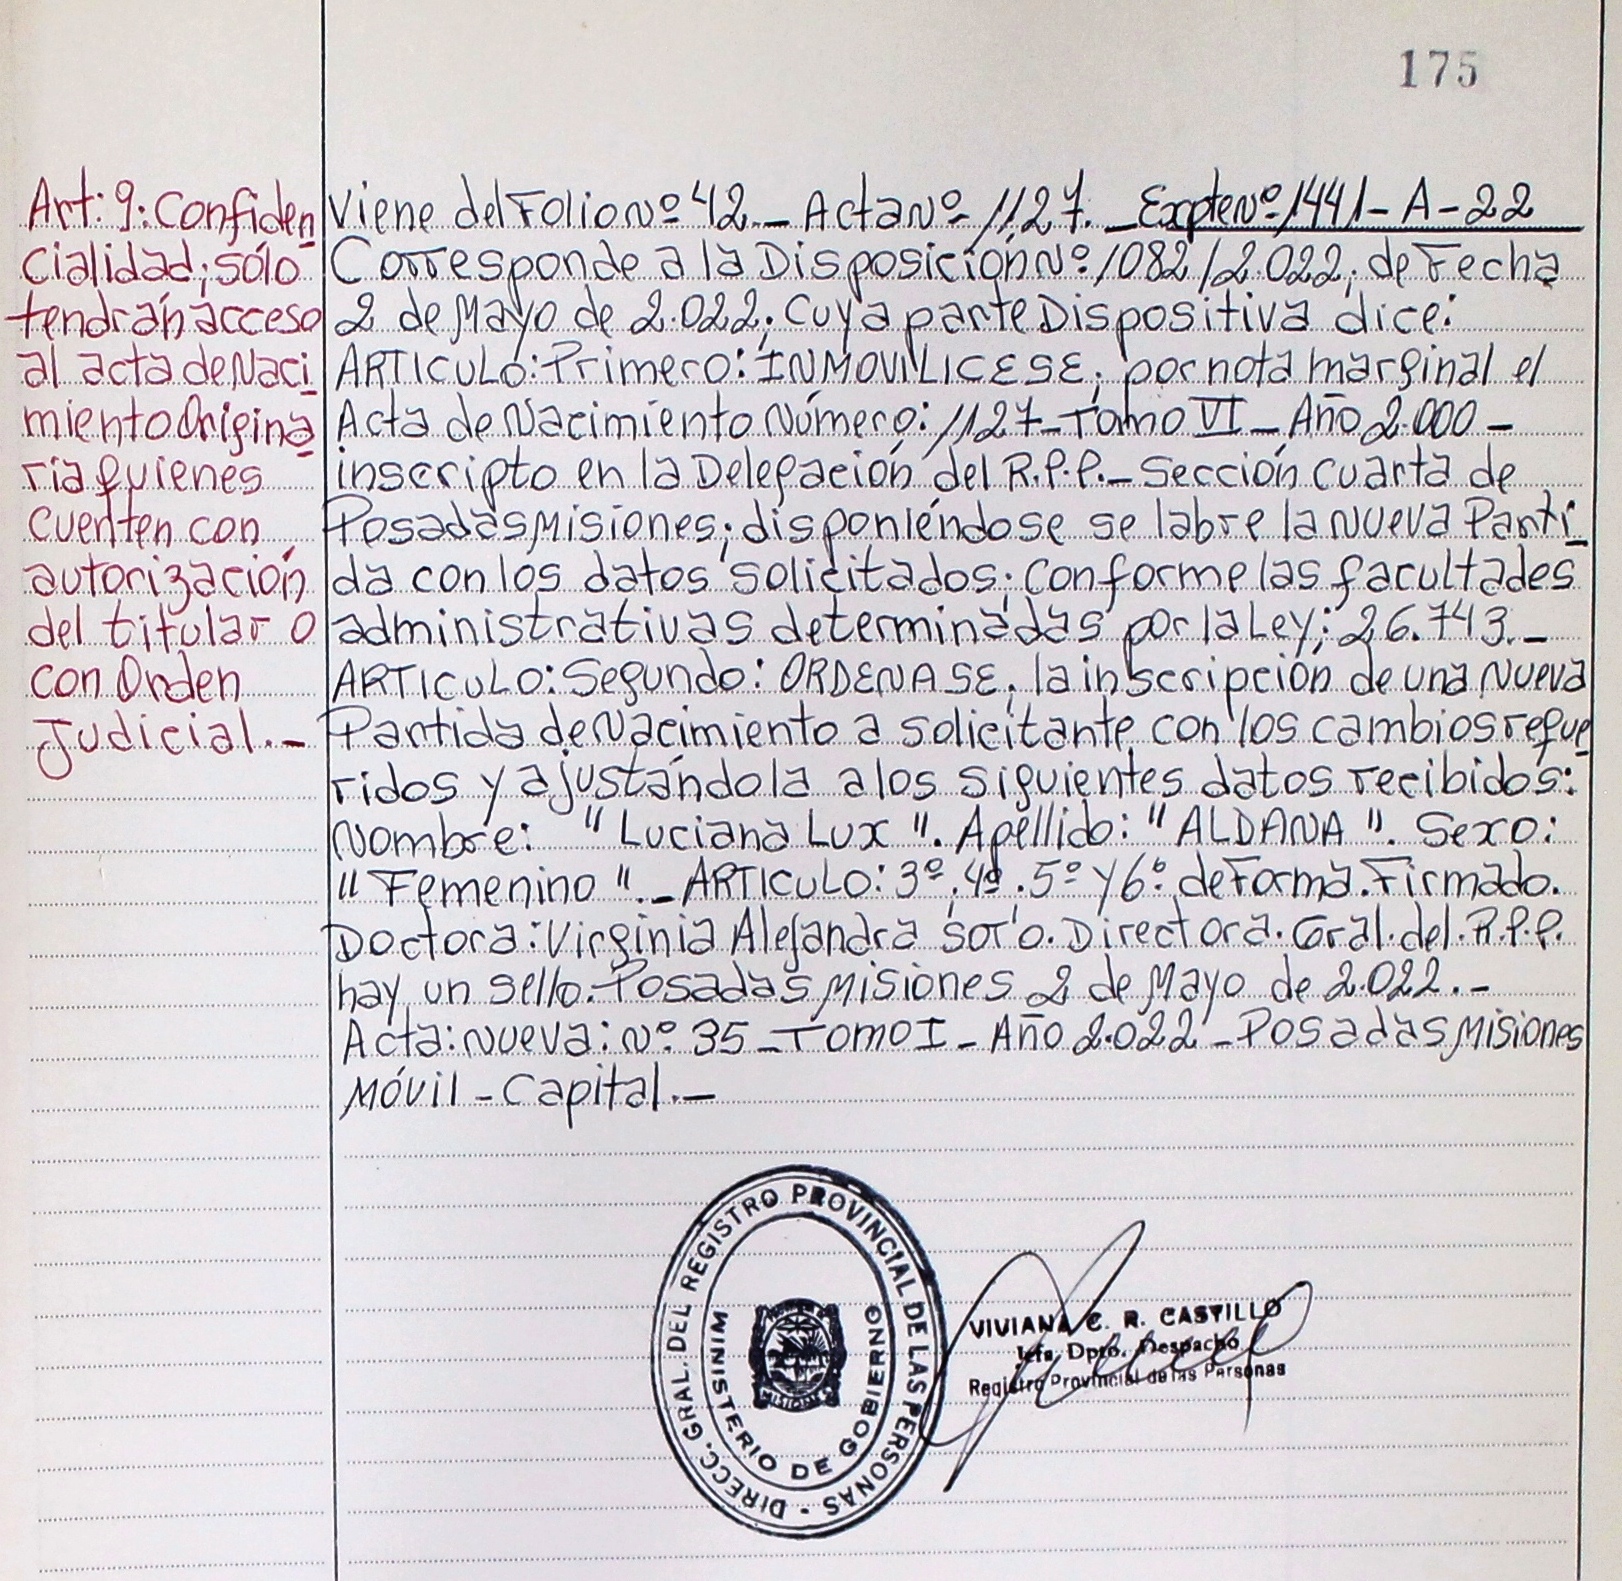 175
Art: 9: Confiden
cialidad; sólo
tendrán acceso
al acta de Naci
miento Origina
ria quienes
cuenten con
autorización
del titular o
con Orden
Judicial.-
Viene del Folio Nº 42.- Acta Nº 1127. - Expte Nº 1441-A-22
Corresponde a la Disposición Nº 1082/2.022, de Fecha
2 de Mayo de 2.022; Cuya parte Dispositiva dice:
ARTICULO: Primero: INMOVILICESE; por nota marginal el
Acta de Nacimiento Número: 1127 - Tomo VI - Año 2.000 -
inscripto en la Delegación del R.P.P. - Sección Cuarta de
Posadas Misiones; disponiéndose se labre la Nueva Parti
da con los datos solicitados; Conforme las facultades
administrativas determinadas por la Ley: 26.743.-
ARTICULO: Segundo: ORDENASE, la inscripción de una Nueva
Partida de Nacimiento a solicitante, con los cambios reque
ridos y ajustándola a los siguientes datos recibidos:
Nombre: "Luciana Lux". Apellido: "ALDANA". Sexo:
"Femenino".- ARTICULO: 3º, 4º, 5º y 6º de Forma. Firmado.
Doctora: Virginia Alejandra Soto. Directora. Gral. del. R.P.P.
hay un sello. Posadas Misiones 2 de Mayo de 2.022.-
Acta: Nueva: Nº 35 - Tomo I - Año 2.022 - Posadas Misiones
Móvil - Capital.-
DIRECC. GRAL. DEL REGISTRO PROVINCIAL DE LAS PERSONAS -
MINISTERIO DE GOBIERNO
MISIONES
VIVIANA C. R. CASTILLO
Jefa Dpto. Despacho
Registro Provincial de las Personas